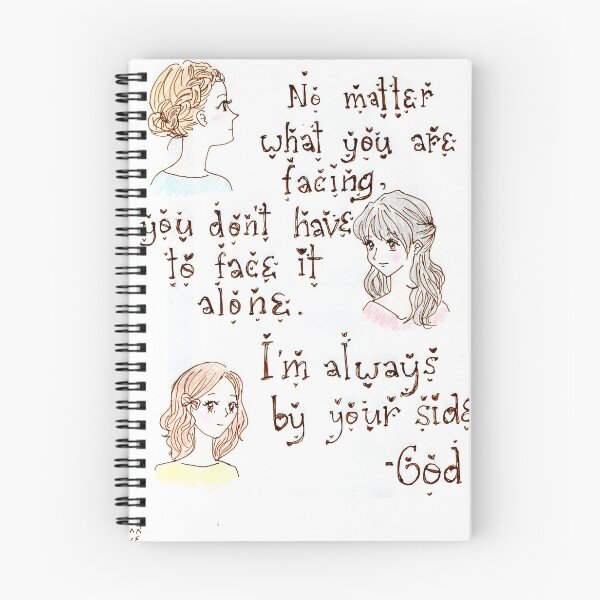 No matter
what you are
facing,
you don't have
to face it
alone.
I'm always
by your side
-God